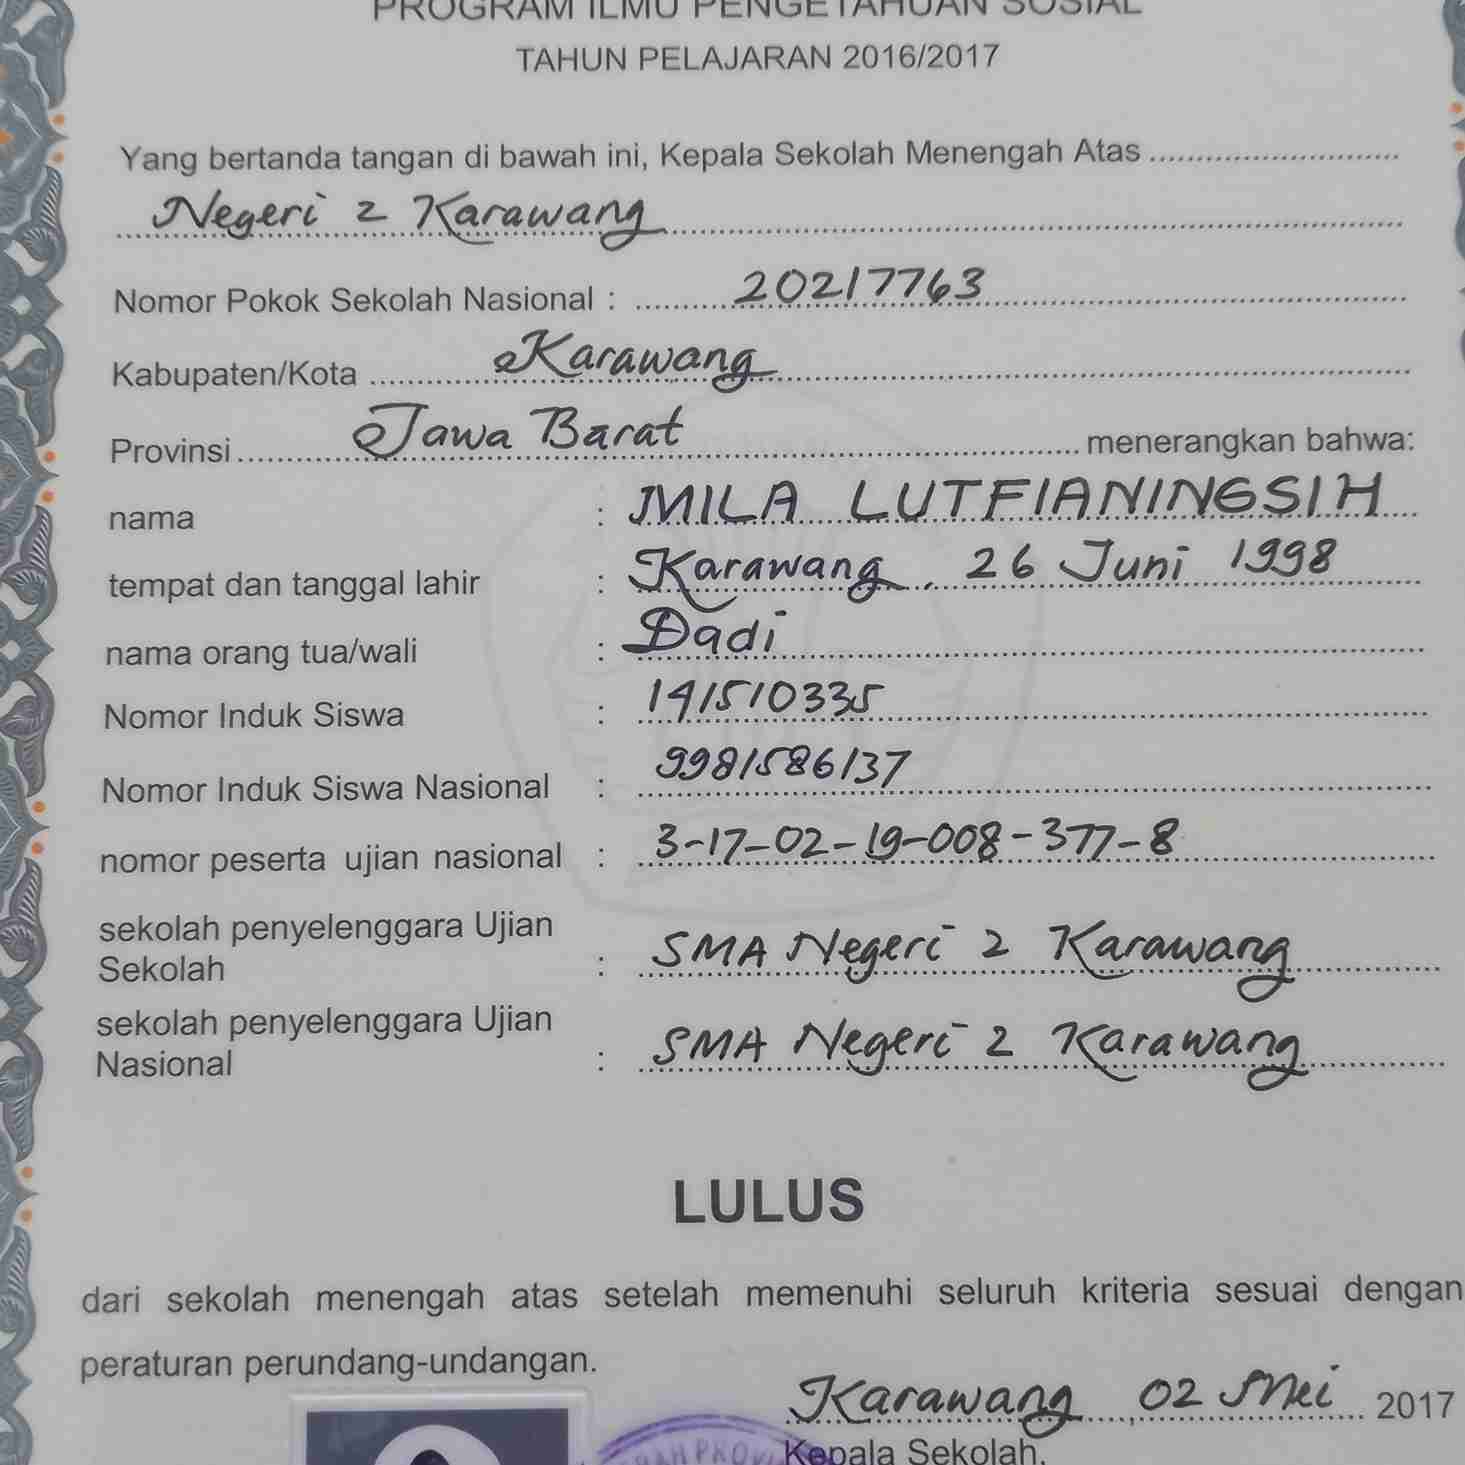 PROGRAM ILMU PENGETAHUAN SOSIAL
TAHUN PELAJARAN 2016/2017
Yang bertanda tangan di bawah ini, Kepala Sekolah Menengah Atas
Negeri 2 Karawang
Nomor Pokok Sekolah Nasional : 20217763
Kabupaten/Kota Karawang
Provinsi Jawa Barat menerangkan bahwa:
nama : MILA LUTFIANINGSIH
tempat dan tanggal lahir : Karawang, 26 Juni 1998
nama orang tua/wali : Dadi
Nomor Induk Siswa : 141510335
Nomor Induk Siswa Nasional : 9981586137
nomor peserta ujian nasional : 3-17-02-19-008-377-8
sekolah penyelenggara Ujian
Sekolah : SMA Negeri 2 Karawang
sekolah penyelenggara Ujian
Nasional : SMA Negeri 2 Karawang
LULUS
dari sekolah menengah atas setelah memenuhi seluruh kriteria sesuai dengan
peraturan perundang-undangan.
Karawang, 02 Mei 2017
Kepala Sekolah,